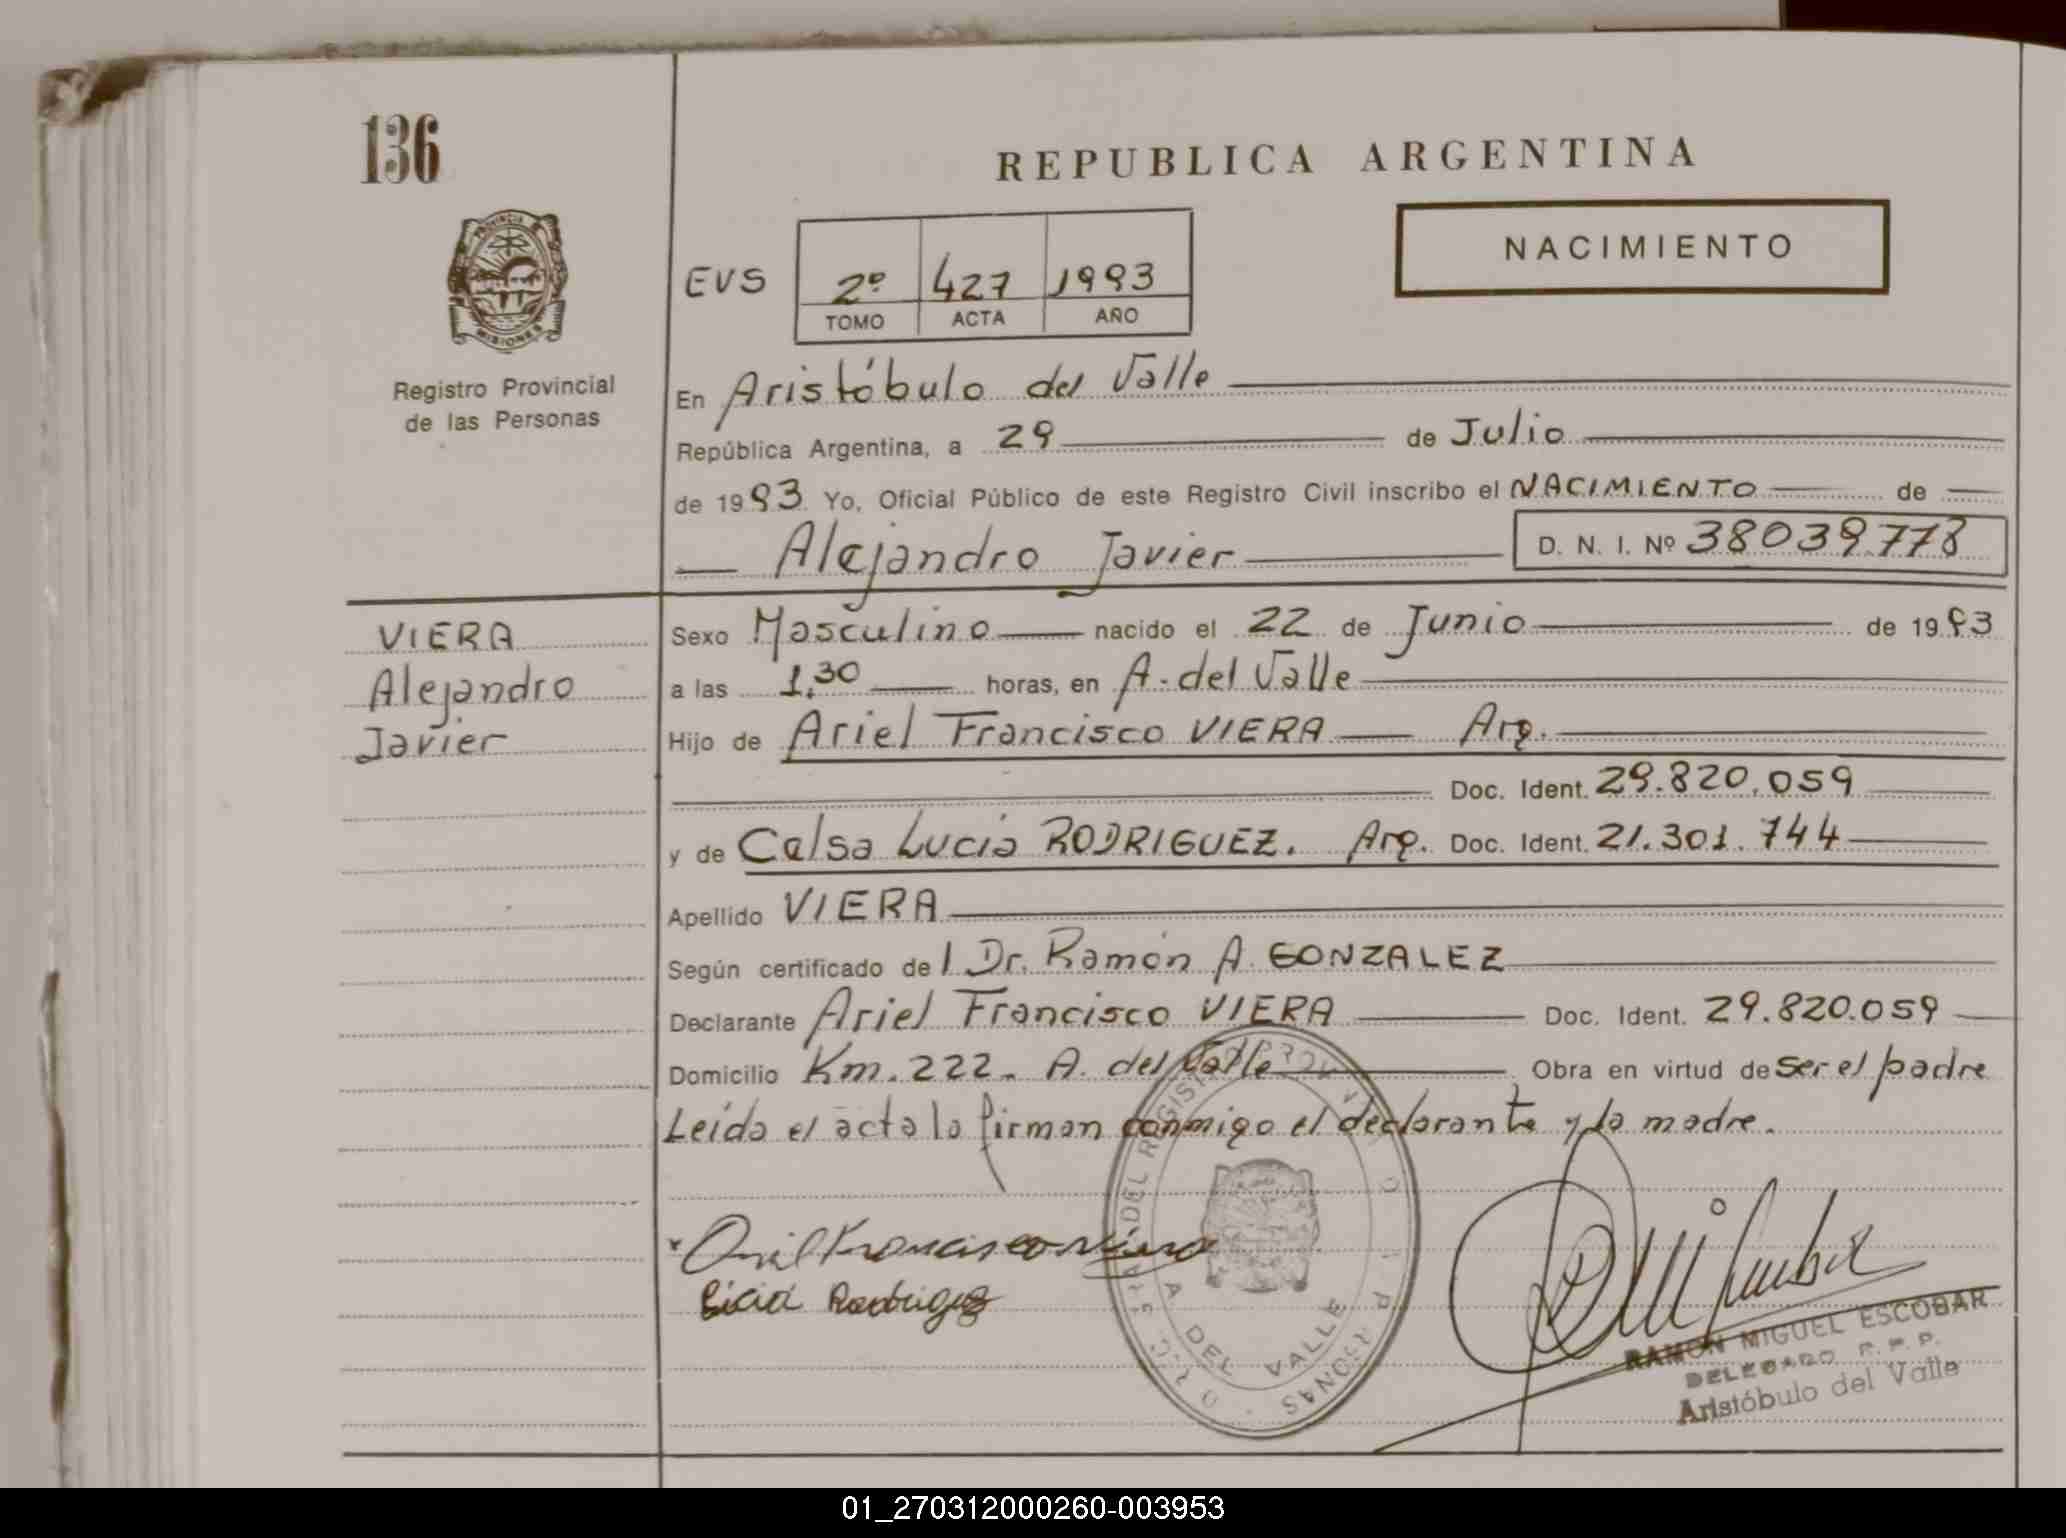 136
REPUBLICA ARGENTINA
PROVINCIA
MISIONES
Registro Provincial
de las Personas
NACIMIENTO
EVS 2º 427 1993
TOMO ACTA AÑO
En Aristóbulo del Valle
República Argentina, a 29 de Julio
de 1993 Yo, Oficial Público de este Registro Civil inscribo el NACIMIENTO de
Alejandro Javier D. N. I. Nº 38039778
VIERA
Alejandro
Javier
Sexo Masculino nacido el 22 de Junio de 1993
a las 1.30 horas, en A. del Valle
Hijo de Ariel Francisco VIERA Arg.
Doc. Ident. 29.820.059
y de Celsa Lucia RODRIGUEZ. Arg. Doc. Ident. 21.301.744
Apellido VIERA
Según certificado del Dr. Ramón A. GONZALEZ
Declarante Ariel Francisco VIERA Doc. Ident. 29.820.059
Domicilio Km. 222. A. del Valle Obra en virtud de ser el padre
Leída el acta la firman conmigo el declarante y la madre.
Ariel Francisco Viera
DEL VALLE
RAMON MIGUEL ESCOBAR
DELEGADO R. P. P.
Aristóbulo del Valle
01_270312000260-003953